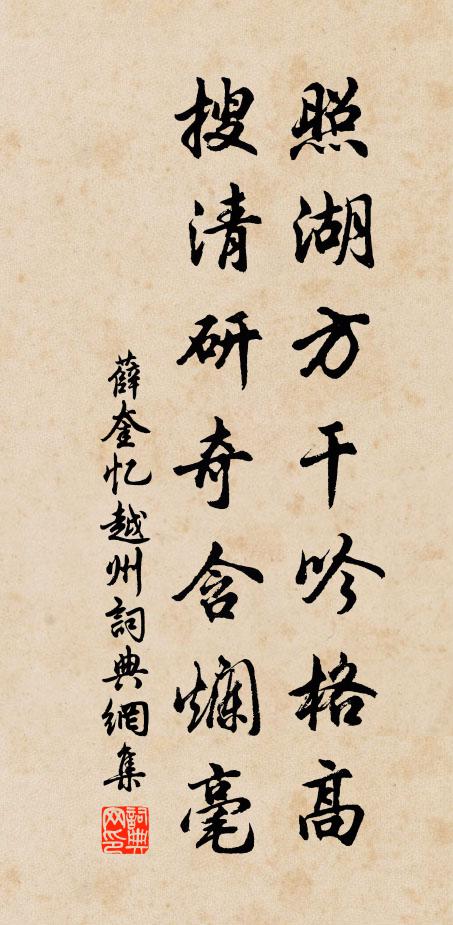 照湖方干吟格高
搜清研奇含爛毫
薛奎忆越州詞典網集
詞典网印